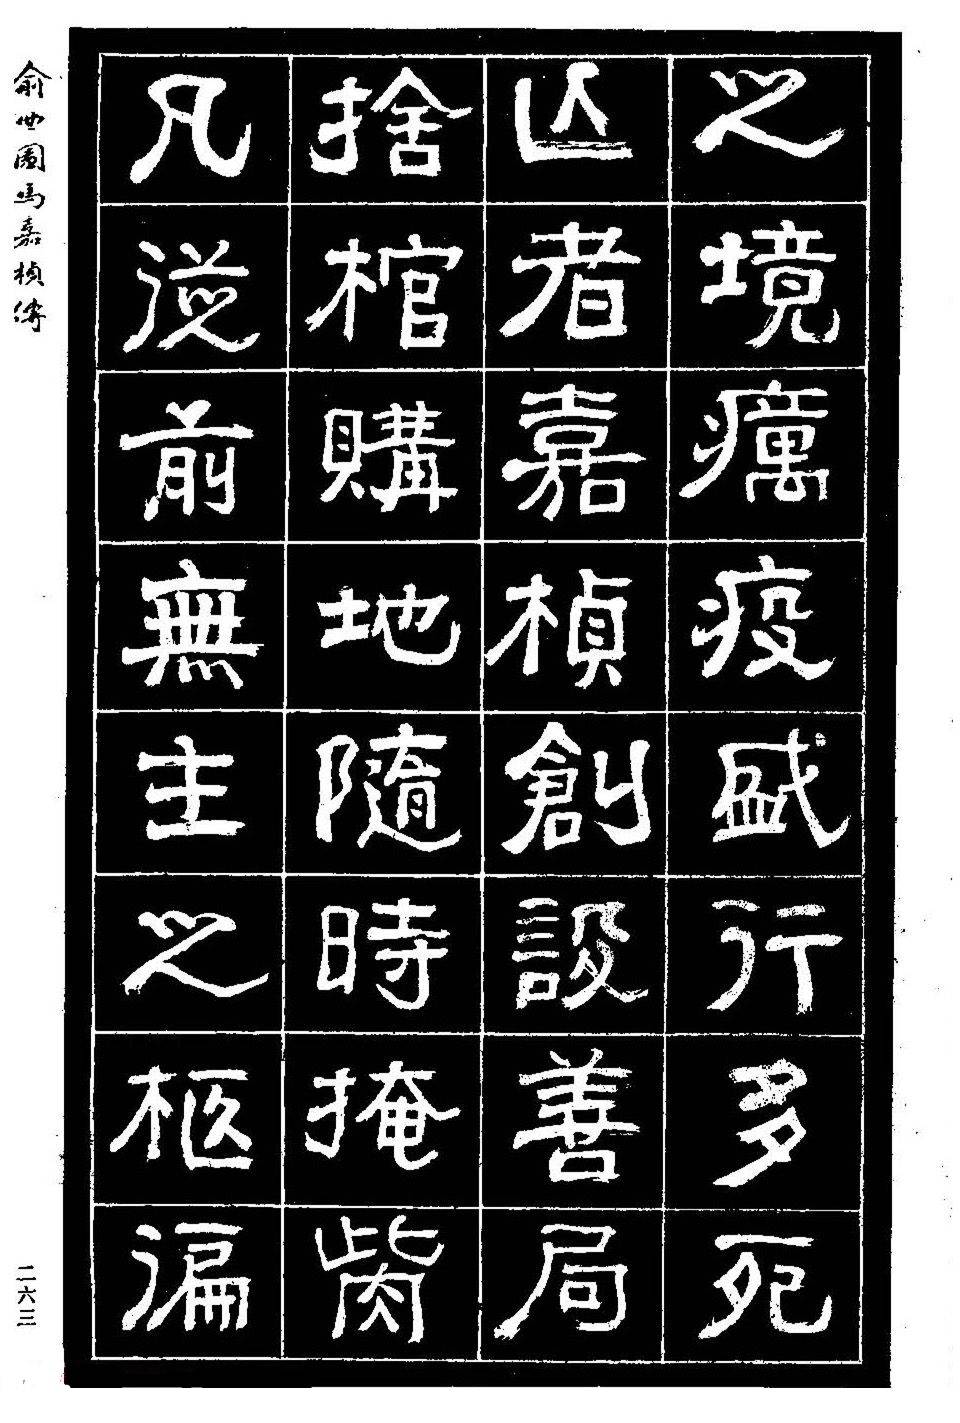 之境癘疫盛行多死
亾者嘉楨創設善局
捨棺購地隨時掩胔
凡從前無主之柩徧
俞曲園馮嘉楨傳
二六三